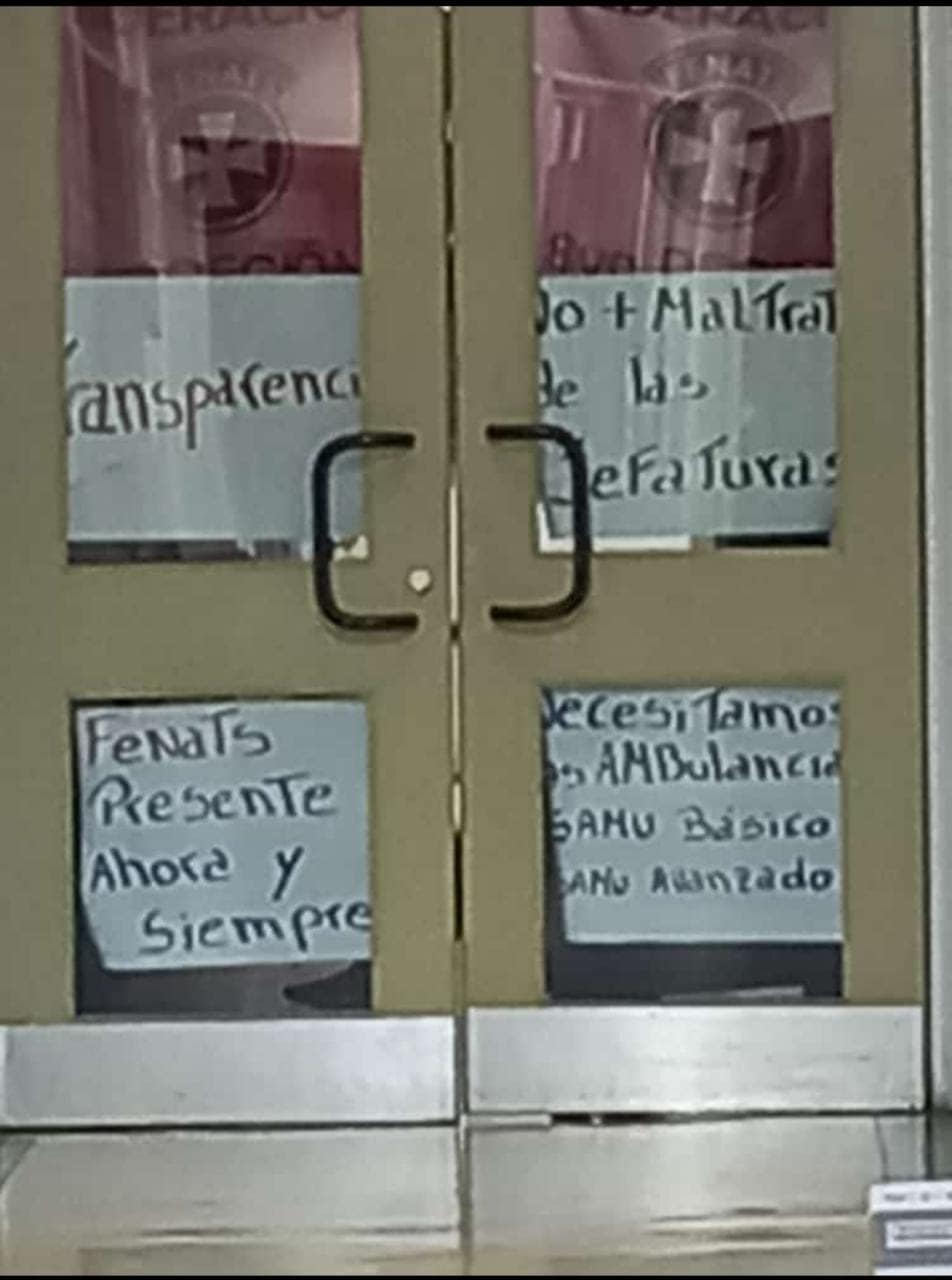 ERACIO
FENATS
ransparenci
DERACI
FENATS
No + MalTraT
de las
JeFaTuras
FeNaTS
Presente
Ahora y
Siempre
Necesitamos
AMBulancia
SAMU Básico
SAMU Avanzado